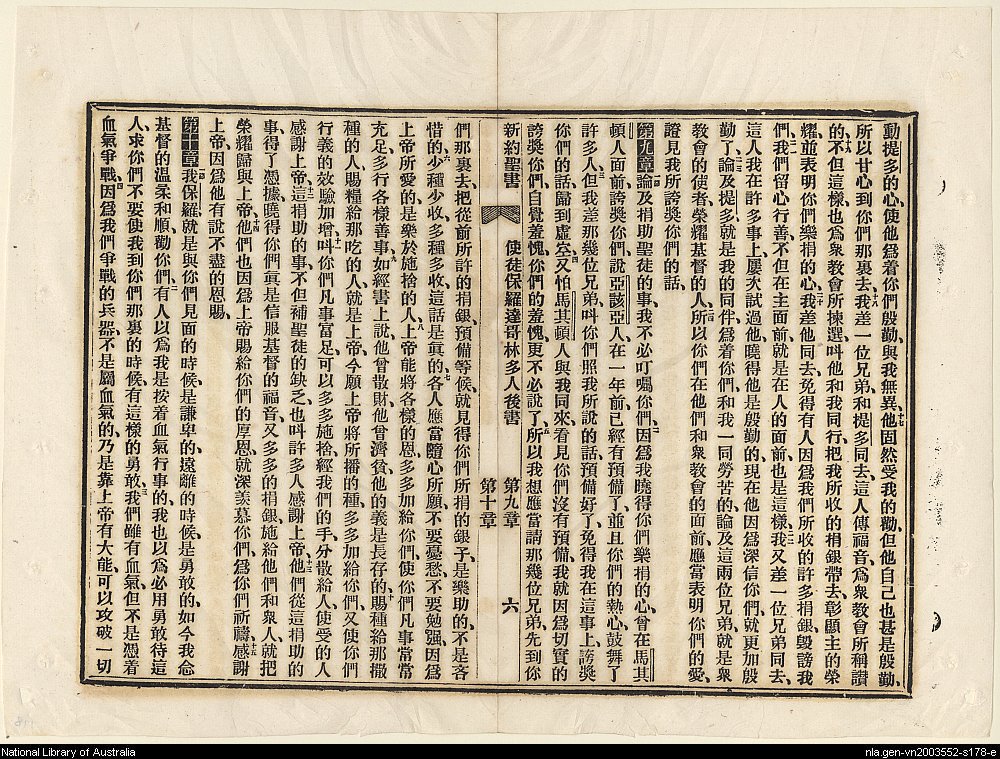 動提多的心、使他爲着你們殷勤、與我無異、他固然受我的勸、但他自己也甚是殷勤、
所以甘心到你們那裏去、我差一位兄弟、和提多同去、這人傳福音、爲衆教會所稱讚
的、不但這樣、也爲衆教會所揀選、叫他和我同行、把我所收的捐銀帶去、彰顯主的榮
耀、並表明你們樂捐的心、我差他同去、免得有人因爲我們所收的許多捐銀、毀謗我
們、我們留心行善、不但在主面前、就是在人的面前、也是這樣、我又差一位兄弟同去、
這人我在許多事上、屢次試過他、曉得他是殷勤的、現在他因爲深信你們、就更加殷
勤了、論及提多、就是我的同伴、爲着你們、和我一同勞苦的、論及這兩位兄弟、就是衆
教會的使者、榮耀基督的人、所以你們在他們和衆教會的面前、應當表明你們的愛、
證見我所誇獎你們的話、
第九章 論及捐助聖徒的事、我不必叮囑你們、因爲我曉得你們樂捐的心、曾在馬其
頓人面前、誇獎你們、說、亞該亞人、在一年前、已經有預備了、並且你們的熱心、鼓舞了
許多人、但我差那幾位兄弟、叫你們照我所說的話預備好了、免得我在這事上、誇獎
你們的話、歸到虛空、又怕馬其頓人與我同來、看見你們沒有預備、我就因爲切實的
誇獎你們、自覺羞愧、你們的羞愧、更不必說了、所以我想應當請那幾位兄弟、先到你
新約聖書 使徒保羅達哥林多人後書 第九章 第十章 六
們那裏去、把從前所許的捐銀、預備等候、就見得你們所捐的銀子、是樂助的、不是吝
惜的、少種少收、多種多收、這話是眞的、各人應當隨心所願、不要憂愁、不要勉强、因爲
上帝所愛的、是樂於施捨的人、上帝能將各樣的恩、多多加給你們、使你們凡事常常
充足、多行各樣善事、如經書上說、他曾散財、他曾濟貧、他的義是長存的、賜種給那撒
種的人、賜糧給那吃的人、就是上帝、今願上帝將所播的種、多多加給你們、又使你們
行義的效驗加增、叫你們凡事富足、可以多多施捨、經我們的手、分散給人、使受的人
感謝上帝、這捐助的事、不但補聖徒的缺乏、也叫許多人感謝上帝、他們從這捐助的
事、得了憑據、曉得你們眞是信服基督的福音、又多多的捐銀、施給他們和衆人、就把
榮耀歸與上帝、他們也因爲上帝賜給你們的厚恩、就深羨慕你們、爲你們祈禱、感謝
上帝、因爲他有說不盡的恩賜、
第十章 我保羅、就是與你們見面的時候、是謙卑的、遠離的時候、是勇敢的、如今我念
基督的溫柔和順、勸你們、有人以爲我是按着血氣行事的、我也以爲必用勇敢待這
人、求你們不要使我到你們那裏的時候、有這樣的勇敢、我們雖有血氣、但不是憑着
血氣爭戰、因爲我們爭戰的兵器、不是屬血氣的、乃是靠上帝有大能、可以攻破一切
National Library of Australia
nla.gen-vn2003552-s178-e